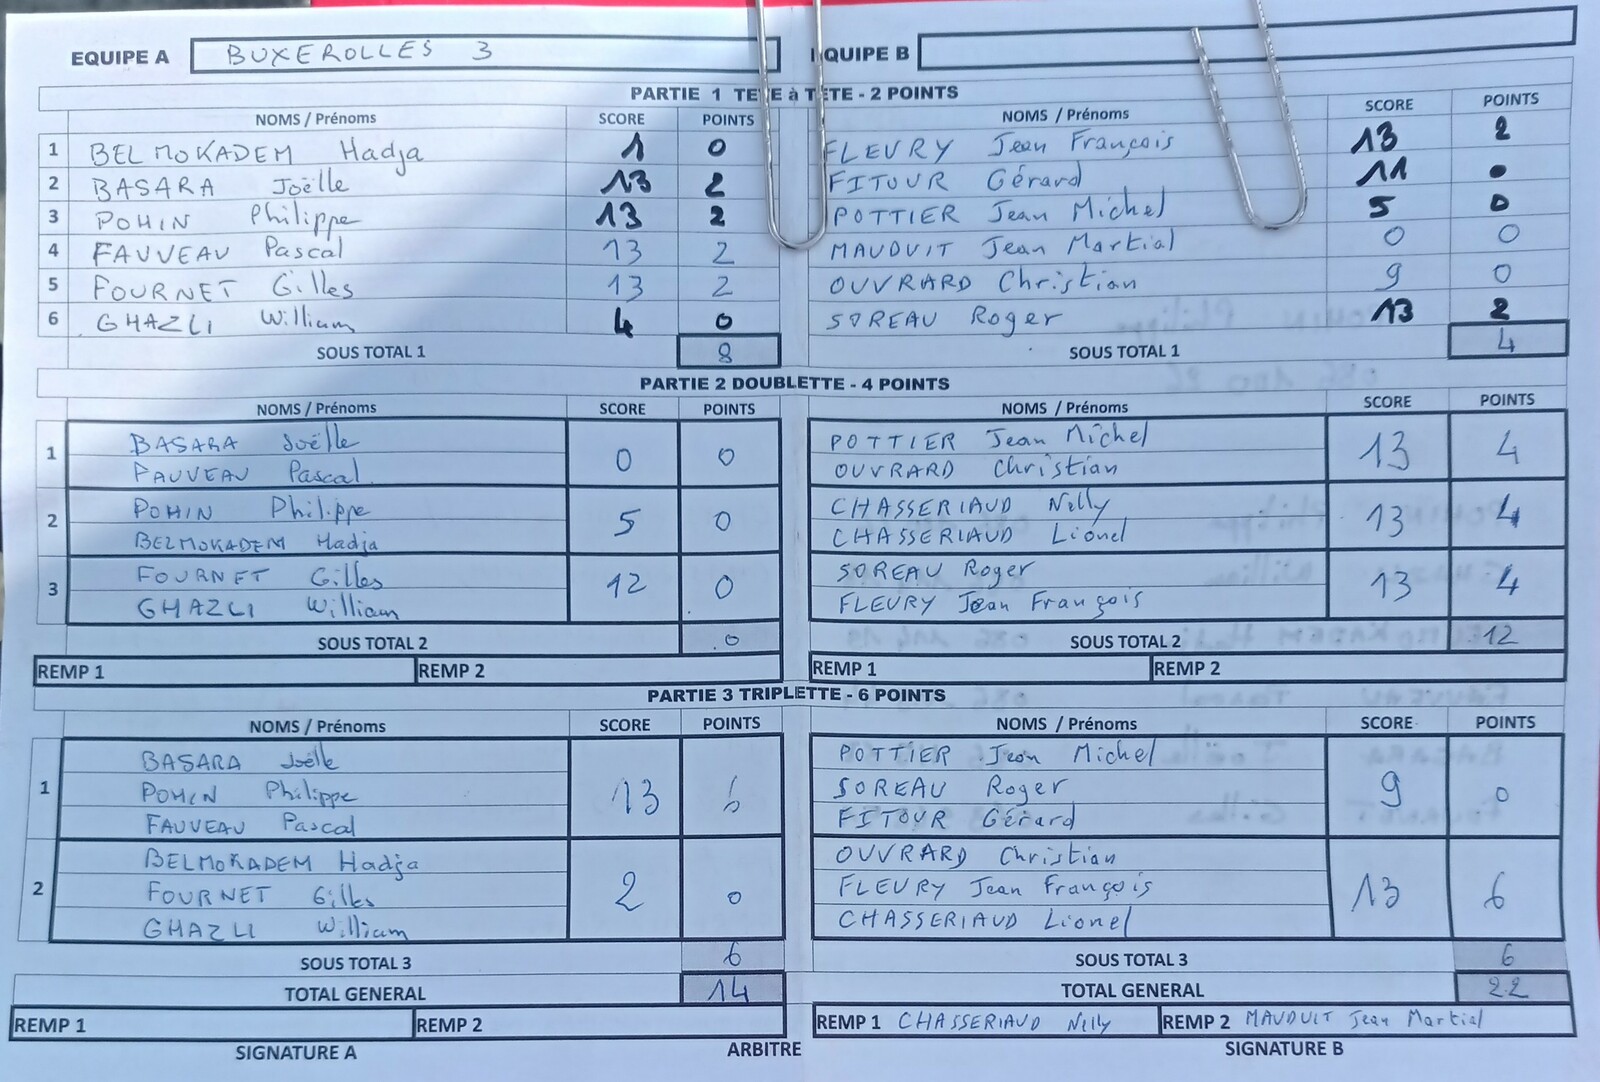 EQUIPE A BUXEROLLES 3 QUIPE B
PARTIE 1 TETE à TÊTE - 2 POINTS
NOMS / Prénoms SCORE POINTS NOMS / Prénoms SCORE POINTS
1 BELMOKADEM Hadja 1 0 FLEURY Jean François 13 2
2 BASARA Joëlle 13 2 FITOUR Gérard 11 0
3 POHIN Philippe 13 2 POTTIER Jean Michel 5 0
4 FAUVEAU Pascal 13 2 MAUDUIT Jean Martial 0 0
5 FOURNET Gilles 13 2 OUVRARD Christian 9 0
6 GHAZLI William 4 0 SOREAU Roger 13 2
SOUS TOTAL 1 8 SOUS TOTAL 1 4
PARTIE 2 DOUBLETTE - 4 POINTS
NOMS / Prénoms SCORE POINTS NOMS / Prénoms SCORE POINTS
1 BASARA Joëlle 0 0 POTTIER Jean Michel 13 4
FAUVEAU Pascal OUVRARD Christian
2 POHIN Philippe 5 0 CHASSERIAUD Nelly 13 4
BELMOKADEM Hadja CHASSERIAUD Lionel
3 FOURNET Gilles 12 0 SOREAU Roger 13 4
GHAZLI William FLEURY Jean François
SOUS TOTAL 2 0 SOUS TOTAL 2 12
REMP 1 REMP 2 REMP 1 REMP 2
PARTIE 3 TRIPLETTE - 6 POINTS
NOMS / Prénoms SCORE POINTS NOMS / Prénoms SCORE POINTS
1 BASARA Joëlle 13 6 POTTIER Jean Michel 9 0
POHIN Philippe SOREAU Roger
FAUVEAU Pascal FITOUR Gérard
2 BELMOKADEM Hadja 2 0 OUVRARD Christian 13 6
FOURNET Gilles FLEURY Jean François
GHAZLI William CHASSERIAUD Lionel
SOUS TOTAL 3 6 SOUS TOTAL 3 6
TOTAL GENERAL 14 TOTAL GENERAL 22
REMP 1 REMP 2 REMP 1 CHASSERIAUD Nelly REMP 2 MAUDUIT Jean Martial
SIGNATURE A ARBITRE SIGNATURE B